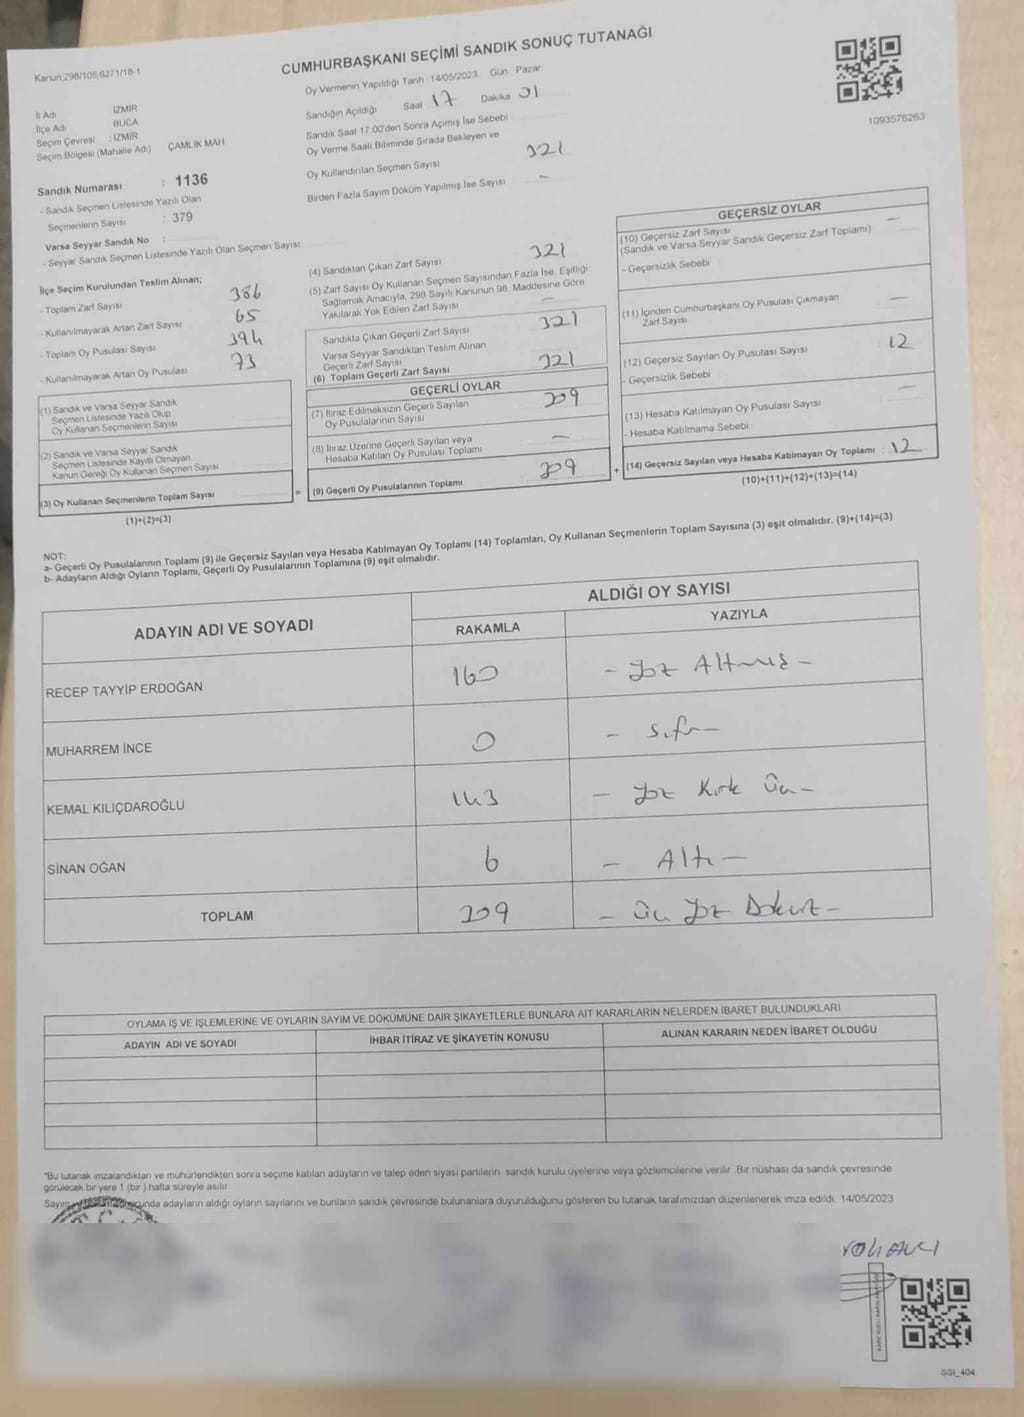 Kanun;298/105;6271/18-1
CUMHURBAŞKANI SEÇİMİ SANDIK SONUÇ TUTANAĞI
1093576263
İl Adı İZMİR
İlçe Adı BUCA
Seçim Çevresi : İZMİR
Seçim Bölgesi (Mahalle Adı) ÇAMLIK MAH
Sandık Numarası : 1136
- Sandık Seçmen Listesinde Yazılı Olan
Seçmenlerin Sayısı : 379
Varsa Seyyar Sandık No :
- Seyyar Sandık Seçmen Listesinde Yazılı Olan Seçmen Sayısı
Oy Vermenin Yapıldığı Tarih : 14/05/2023 Gün Pazar
Sandığın Açıldığı Saat 17 Dakika 01
Sandık Saat 17:00'den Sonra Açılmış İse Sebebi
Oy Verme Saati Bitiminde Sırada Bekleyen ve
Oy Kullandırılan Seçmen Sayısı 321
Birden Fazla Sayım Döküm Yapılmış İse Sayısı -
İlçe Seçim Kurulundan Teslim Alınan;
- Toplam Zarf Sayısı 386
- Kullanılmayarak Artan Zarf Sayısı 65
- Toplam Oy Pusulası Sayısı 394
- Kullanılmayarak Artan Oy Pusulası 73
(1) Sandık ve Varsa Seyyar Sandık
Seçmen Listesinde Yazılı Olup
Oy Kullanan Seçmenlerin Sayısı
(2) Sandık ve Varsa Seyyar Sandık
Seçmen Listesinde Kayıtlı Olmayan
Kanun Gereği Oy Kullanan Seçmen Sayısı
(3) Oy Kullanan Seçmenlerin Toplam Sayısı
(1)+(2)=(3)
(4) Sandıktan Çıkan Zarf Sayısı 321
(5) Zarf Sayısı Oy Kullanan Seçmen Sayısından Fazla İse, Eşitliği
Sağlamak Amacıyla, 298 Sayılı Kanunun 98. Maddesine Göre
Yakılarak Yok Edilen Zarf Sayısı -
Sandıkta Çıkan Geçerli Zarf Sayısı 321
Varsa Seyyar Sandıktan Teslim Alınan
Geçerli Zarf Sayısı
(6) Toplam Geçerli Zarf Sayısı 321
GEÇERLİ OYLAR
(7) İtiraz Edilmeksizin Geçerli Sayılan
Oy Pusulalarının Sayısı 309
(8) İtiraz Üzerine Geçerli Sayılan veya
Hesaba Katılan Oy Pusulası Toplamı -
= (9) Geçerli Oy Pusulalarının Toplamı 309
GEÇERSİZ OYLAR
(10) Geçersiz Zarf Sayısı -
(Sandık ve Varsa Seyyar Sandık Geçersiz Zarf Toplamı)
- Geçersizlik Sebebi
(11) İçinden Cumhurbaşkanı Oy Pusulası Çıkmayan
Zarf Sayısı -
(12) Geçersiz Sayılan Oy Pusulası Sayısı 12
- Geçersizlik Sebebi
(13) Hesaba Katılmayan Oy Pusulası Sayısı -
- Hesaba Katılmama Sebebi
+ (14) Geçersiz Sayılan veya Hesaba Katılmayan Oy Toplamı : 12
(10)+(11)+(12)+(13)=(14)
NOT:
a- Geçerli Oy Pusulalarının Toplamı (9) ile Geçersiz Sayılan veya Hesaba Katılmayan Oy Toplamı (14) Toplamları, Oy Kullanan Seçmenlerin Toplam Sayısına (3) eşit olmalıdır. (9)+(14)=(3)
b- Adayların Aldığı Oyların Toplamı, Geçerli Oy Pusulalarının Toplamına (9) eşit olmalıdır.
ADAYIN ADI VE SOYADI ALDIĞI OY SAYISI
RAKAMLA YAZIYLA
RECEP TAYYİP ERDOĞAN 160 - Yüz Altmış -
MUHARREM İNCE 0 - Sıfır -
KEMAL KILIÇDAROĞLU 143 - Yüz Kırk Üç -
SİNAN OĞAN 6 - Altı -
TOPLAM 309 - Üç Yüz Dokuz -
OYLAMA İŞ VE İŞLEMLERİNE VE OYLARIN SAYIM VE DÖKÜMÜNE DAİR ŞİKAYETLERLE BUNLARA AİT KARARLARIN NELERDEN İBARET BULUNDUKLARI
ADAYIN ADI VE SOYADI İHBAR İTİRAZ VE ŞİKAYETİN KONUSU ALINAN KARARIN NEDEN İBARET OLDUĞU
*Bu tutanak imzalandıktan ve mühürlendikten sonra seçime katılan adayların ve talep eden siyasi partilerin sandık kurulu üyelerine veya gözlemcilerine verilir. Bir nüshası da sandık çevresinde
görülecek bir yere 1 (bir ) hafta süreyle asılır.
Sayım adayların aldığı oyların sayılarını ve bunların sandık çevresinde bulunanlara duyurulduğunu gösteren bu tutanak tarafımızdan düzenlenerek imza edildi. 14/05/2023
SSI_404